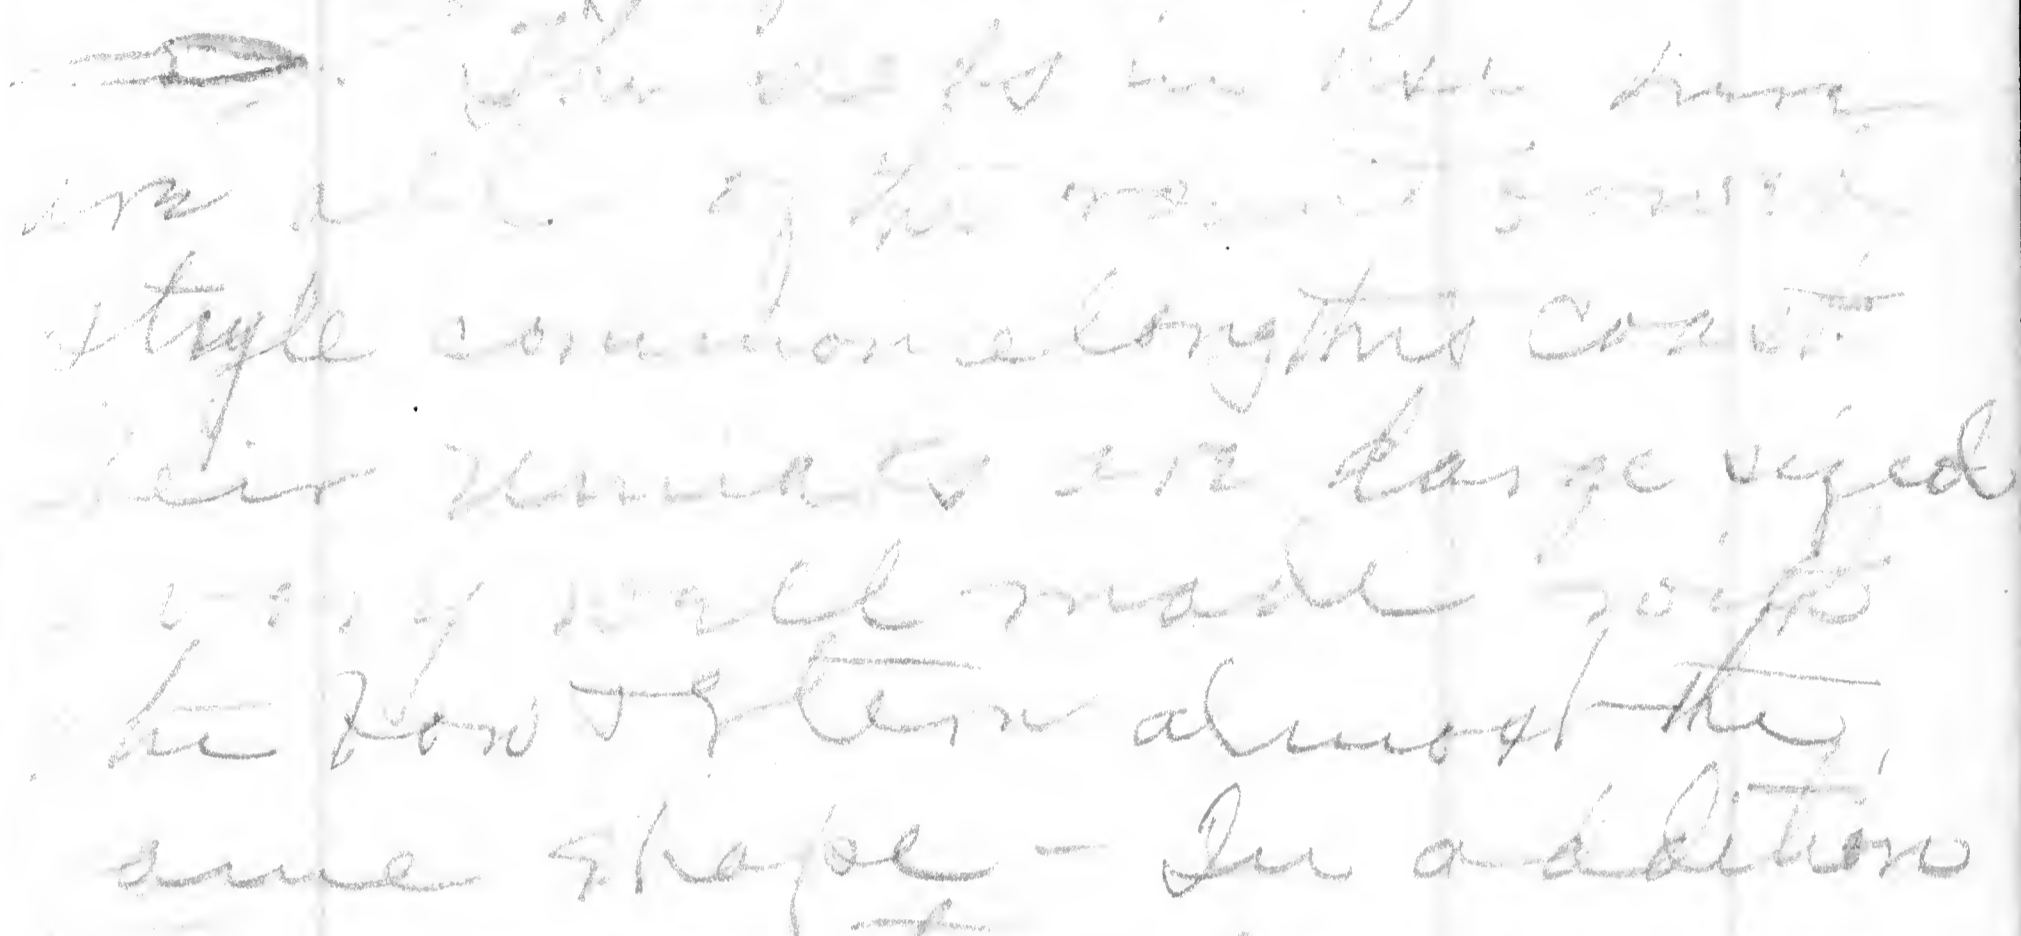 in this
are all of the
style common along this coast
their umiaks are large sized
very well made with
the bow & stern almost the
same shape - In addition